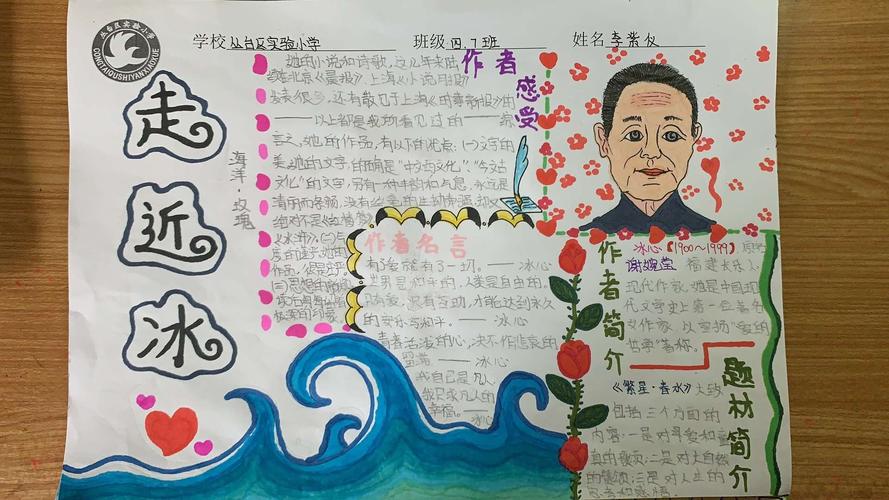 丛台区实验小学
CONGTAIQUSHIYANXIAOXUE
学校 丛台区实验小学 班级 四.7班 姓名 李紫仪
走近冰
海洋·玫瑰
作者感受
她的小说和诗歌,这几年来陆
续北京《晨报》,上海《小说月报》
发表很多,还有散见于上海《时事新报》的
以上都是我切看见过的——综
言之,她的作品,有以下的优点:(一)文字的
美,她的文字,的确是“中西文化”、“今古
文化”的文字,另有一种丰韵和
清丽而条畅,没有
绝对不是
《冰
作者名言
有了爱就有了一切。——冰心
世界是和平的,人类是自由的,
只有爱,只有互助,才能达到永久
的安乐与和平。——冰心
青春活泼的心,决不作悲哀的
留滞 —— 冰心
我自己是凡人
我只求凡人的
幸福。——冰心
作者简介
冰心【1900~1999】原名
谢婉莹 福建长乐人
现代作家,她是中国现
代文学史上第一位著名
女作家,以宣扬“爱的
哲学”著称。
题材简介
《繁星·春水》大致
包括三个方面的
内容:一是对母爱和童
真的歌颂;二是对大自然
的赞颂;三是对人生的
思考和感悟